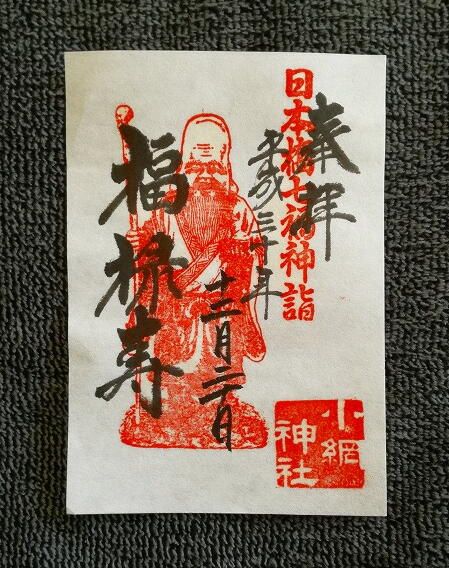 奉拝
日本橋七福神詣
平成三十年
十二月二十日
福禄寿
小網
神社